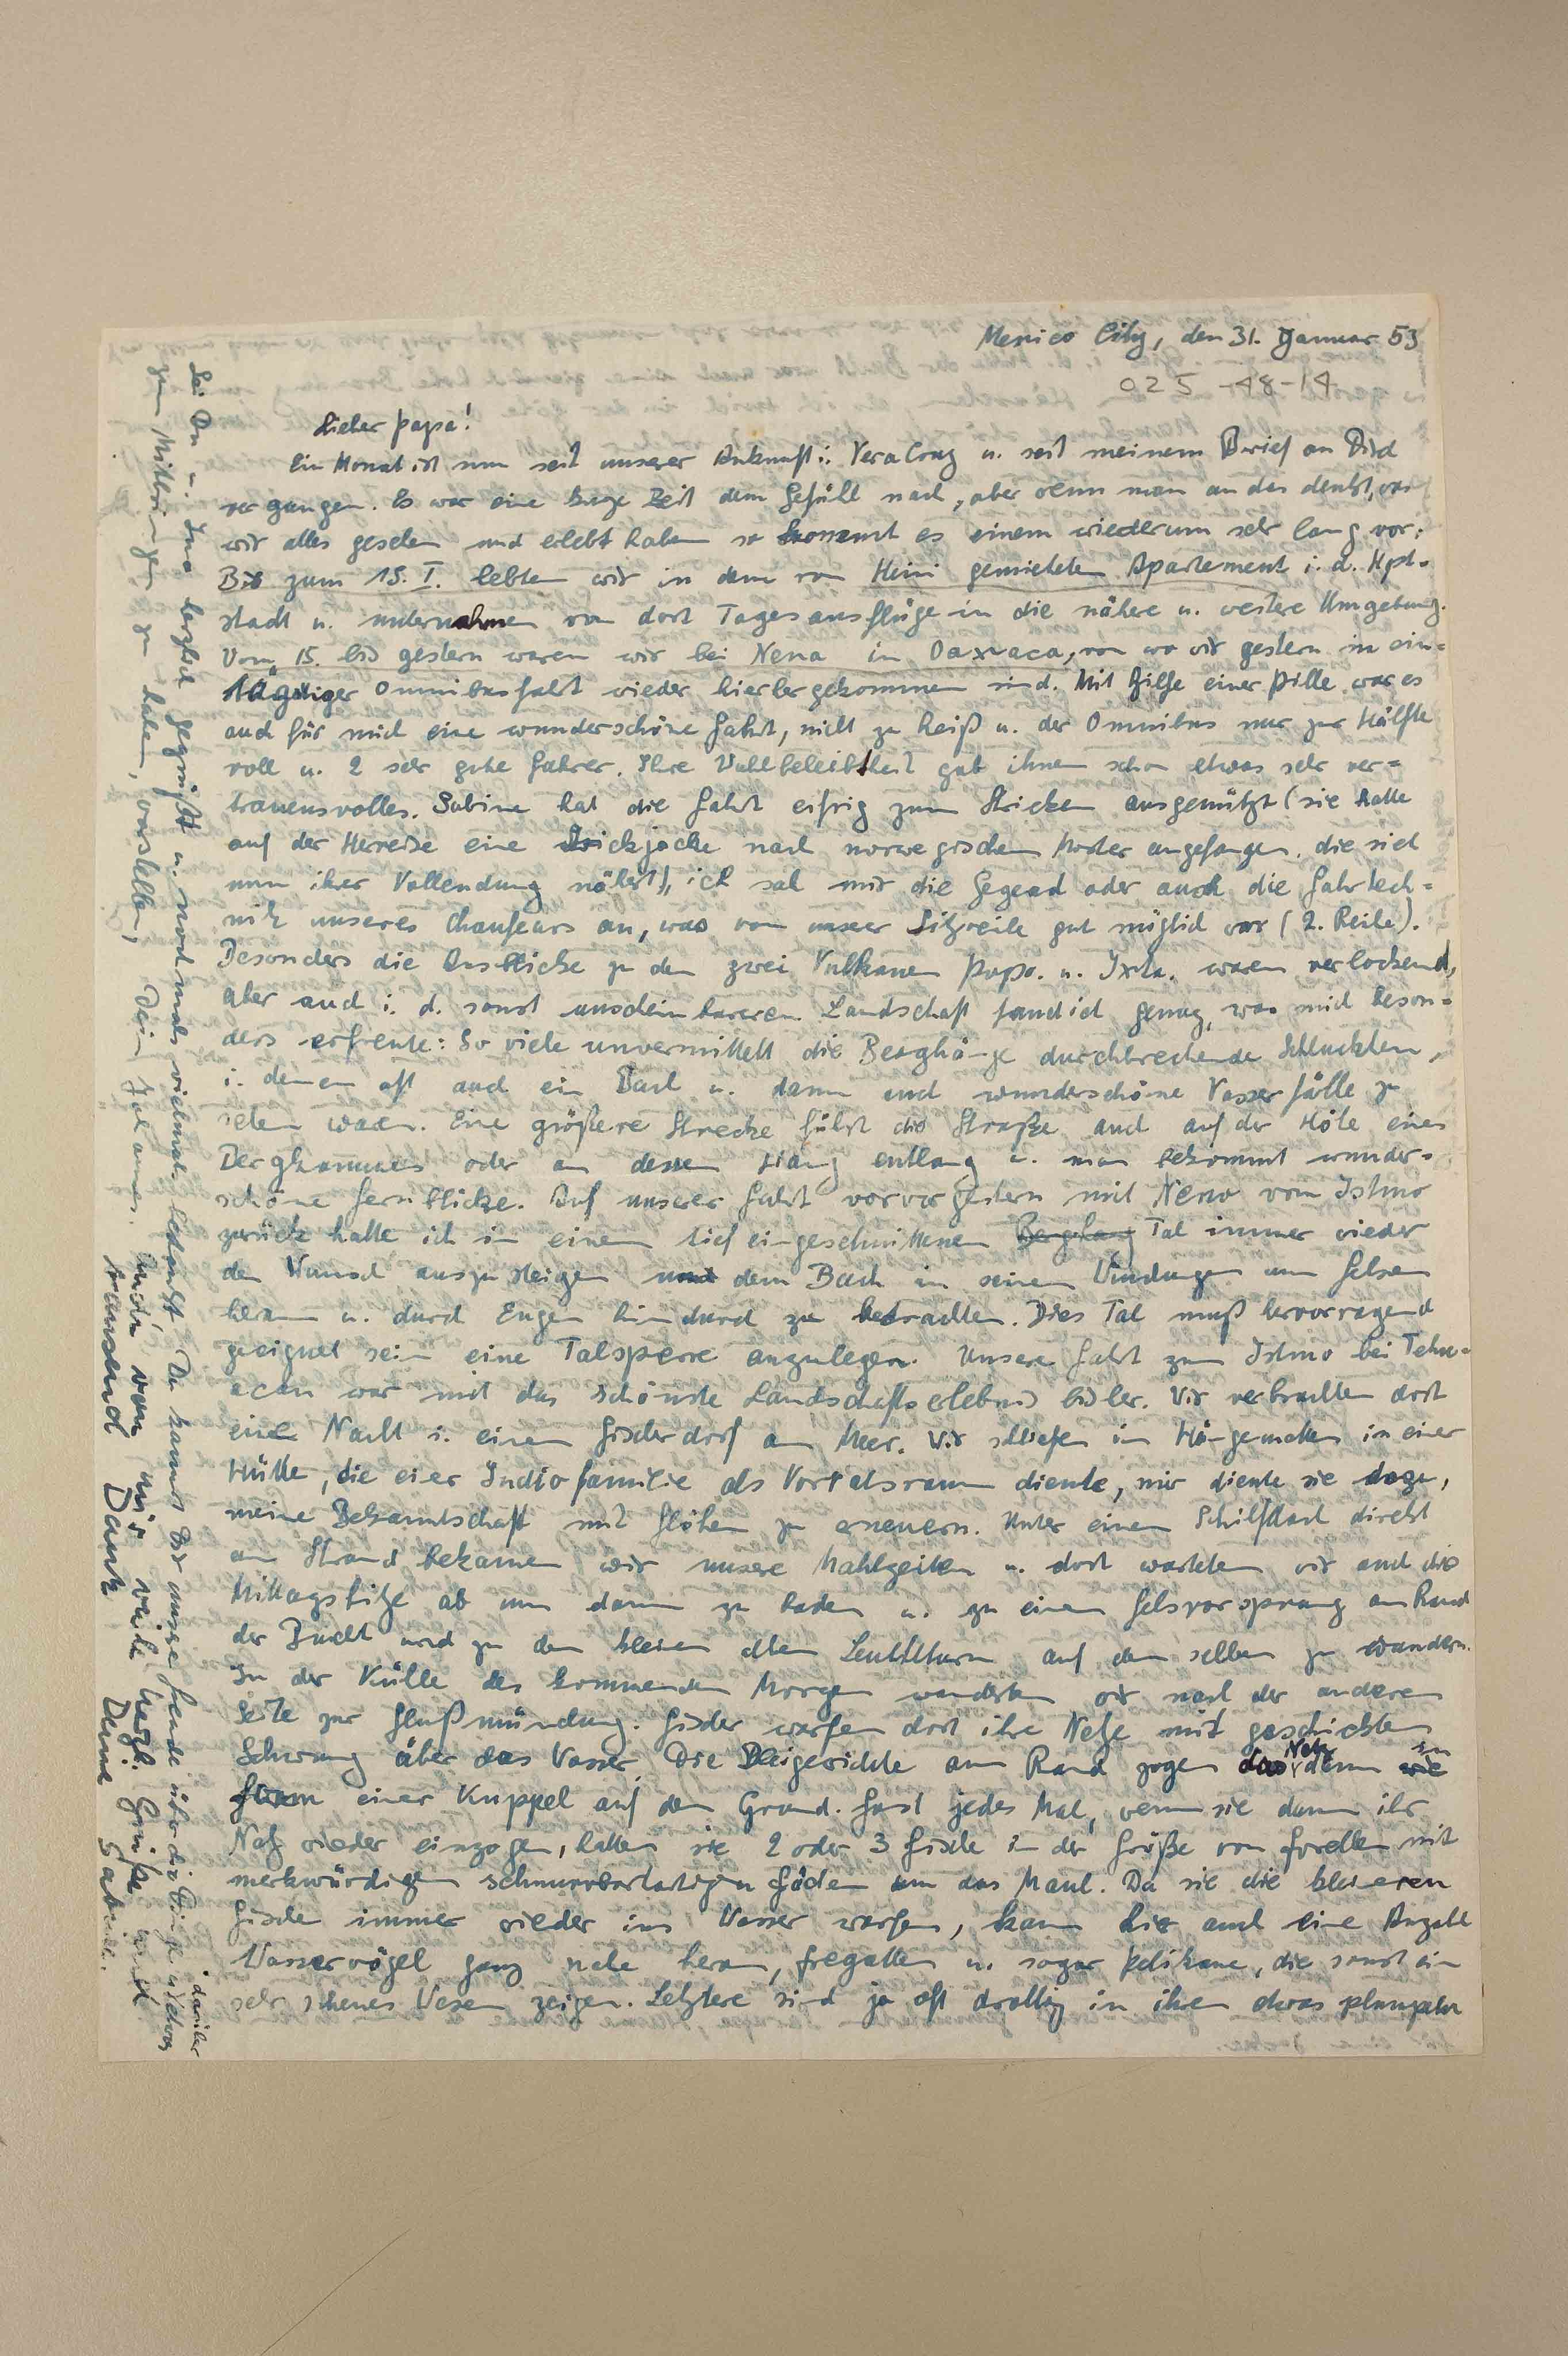 Mexico City, den 31. Januar 53
025-48-14
Lieber Papa!
Ein Monat ist nun seit unserer Ankunft i. Vera Cruz u. seit meinem Brief an Dich
vergangen. Es war eine kurze Zeit dem Gefühl nach, aber wenn man an das denkt, was
wir alles gesehen und erlebt haben so kommt es einem wiederum sehr lang vor:
Bis zum 15. I. lebten wir in dem von Heini gemieteten Apartement i. d. Hpt-
stadt u. unternahmen von dort Tagesausflüge in die nähere u. weitere Umgebung.
Vom 15. bis gestern waren wir bei Nena in Oaxaca, von wo wir gestern in ein=
tägiger Omnibusfahrt wieder hierhergekommen sind. Mit Hilfe einer Pille war es
auch für mich eine wunderschöne Fahrt, nicht zu heiß u. der Omnibus nur zur Hälfte
voll u. 2 sehr gute Fahrer. Ihre Wohlbeleibtheit gab ihnen schon etwas sehr ver=
trauensvolles. Sabine hat die Fahrt eifrig zum Stricken ausgenützt (sie hatte
auf der Herreise eine Strickjacke nach norwegischem Muster angefangen, die sich
nun ihrer Vollendung nähert), ich sah mir die Gegend oder auch die Fahrtech=
nik unseres Chaufeurs an, was von unserer Sitzreihe gut möglich war (2. Reihe).
Besonders die Ausblicke zu den zwei Vulkanen Popo. u. Ixta. waren verlockend,
aber auch i. d. sonst unscheinbareren Landschaft fand ich genug, was mich beson=
ders erfreute: So viele unvermittelt die Berghänge durchbrechende Schluchten,
i. denen oft auch ein Bach u. dann auch wunderschöne Wasserfälle zu
sehen waren. Eine größere Strecke führt die Straße auch auf der Höhe eines
Bergkammes oder an dessen Hang entlang u. man bekommt wunder=
schöne Fernblicke. Auf unserer Fahrt vorvorgestern mit Nena vom Istmo
zurück hatte ich in einem tief eingeschnittenen Berghang Tal immer wieder
den Wunsch auszusteigen und dem Bach in seinen Windungen um Felsen
herum u. durch Engen hindurch zu betrachten. Dies Tal muß hervorragend
geeignet sein eine Talsperre anzulegen. Unsere Fahrt zum Istmo bei Tehu=
acan war mit das schönste Landschaftserlebnis bisher. Wir verbrachten dort
eine Nacht i. einem Fischerdorf am Meer. Wir schliefen in Hängematten in einer
Hütte, die einer Indiofamilie als Vorratsraum diente, mir diente sie dazu,
meine Bekanntschaft mit Flöhen zu erneuern. Unter einem Schilfdach direkt
am Strand bekamen wir unsere Mahlzeiten u. dort warteten wir auch die
Mittagshitze ab um dann zu baden u. zu einem Felsvorsprung am Rand
der Bucht und zu dem kleinen alten Leuchtturm auf dem selben zu wandern.
In der Kühle des kommenden Morgen wanderten wir nach der anderen
Seite zur Flußmündung. Fischer warfen dort ihre Netze mit geschickten
Schwung über das Wasser. Die Bleigewichte am Rand zogen das Netz dann wie in
Form einer Kuppel auf den Grund. Fast jedes Mal, wenn sie dann ihr
Netz wieder einzogen, hatten sie 2 oder 3 Fische in der Größe von Forellen mit
merkwürdigen schnurrbartartigen Fäden um das Maul. Da sie die kleineren
Fische immer wieder ins Wasser warfen, kam hier auch eine Anzahl
Wasservögel ganz nahe heran, Fregatten u. sogar Pelikane, die sonst ein
sehr scheues Wesen zeigen. Letztere sind ja oft drollig in ihrem etwas plumpen
Sei Du u. Ina herzlich gegrüßt u. nochmals vielmals bedankt. Du kannst Dir unsere Freude über die Dinge u. darüber
zum Mitbringen zu haben, vorstellen, Dein Johannes.
Auch von mir viele herzl. Grüße und
tausend Dank Deine Sabine.